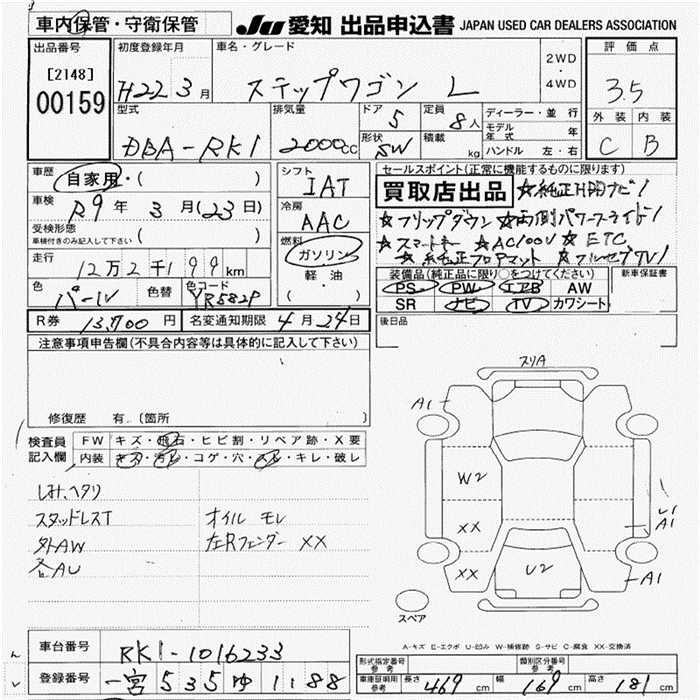 車内保管・守衛保管
JU 愛知 出品申込書 JAPAN USED CAR DEALERS ASSOCIATION
出品番号
[2148]
00159
初度登録年月
H22年3月
車名・グレード
ステップワゴン L
2WD
・
4WD
評価点
3.5
外装 内装
C B
型式
DBA-RK1
排気量
2000cc
ドア
5
形状
SW
定員
8人
積載
kg
ディーラー・並行
モデル年式
年
ハンドル 左・右
車歴
自家用・( )
車検
R9年3月(23日)
受検形態
車検付きのみ記入して下さい ( )
走行
12万2千199km
色
パール
色替
色コード
YR582P
R券 13,700円
名変通知期限 4月24日
シフト
IAT
冷房
AAC
燃料
ガソリン
軽・油
・( )
セールスポイント(正常に機能するものに限ります)
買取店出品 ☆純正HDDナビ!
☆フリップダウン ☆両側パワースライド!
☆スマートキー ☆AC100V ☆ETC
☆純正フロアマット ☆フルセグTV!
装備品(純正品に限り○をつけてください)
PS PW エアB AW
SR ナビ TV カワシート
新車保証書
後日品
注意事項申告欄(不具合内容等は具体的に記入して下さい)
修復歴 有.(箇所
検査員記入欄
FW キズ・飛石・ヒビ割・リペア跡・X要
内装 キズ・汚れ・コゲ・穴・スレ・キレ・破レ
しみ、ヘタリ
スタッドレスT オイル モレ
外AW 左Rフェンダー XX
各AU
スリA
A1
W2
XX
XX
U2
A1
A1
スペア
A-キズ E-エクボ U-凹み W-補修跡 S-サビ C-腐食 XX-交換済
車台番号 RK1-1016233
登録番号 一宮 535 ゆ 1188
形式指定番号 参考
類別区分番号 参考
車庫証明用 参考 長さ 469cm 幅 169cm 高さ 181cm